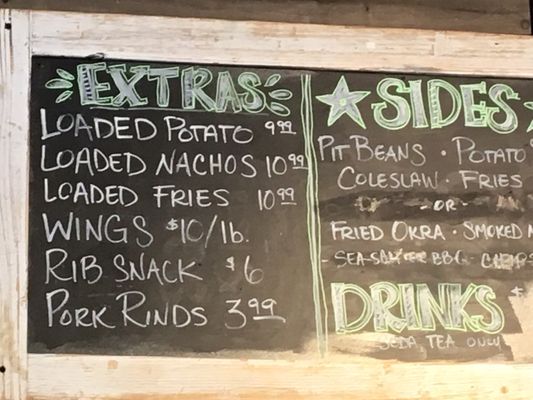 EXTRAS
LOADED POTATO 9.99
LOADED NACHOS 10.99
LOADED FRIES 10.99
WINGS $10/lb.
RIB SNACK $6
PORK RINDS 3.99
SIDES
PIT BEANS · POTATO
COLESLAW · FRIES
-OR-
FRIED OKRA · SMOKED
BBQ CHIPS
DRINKS $
SODA, TEA ONLY